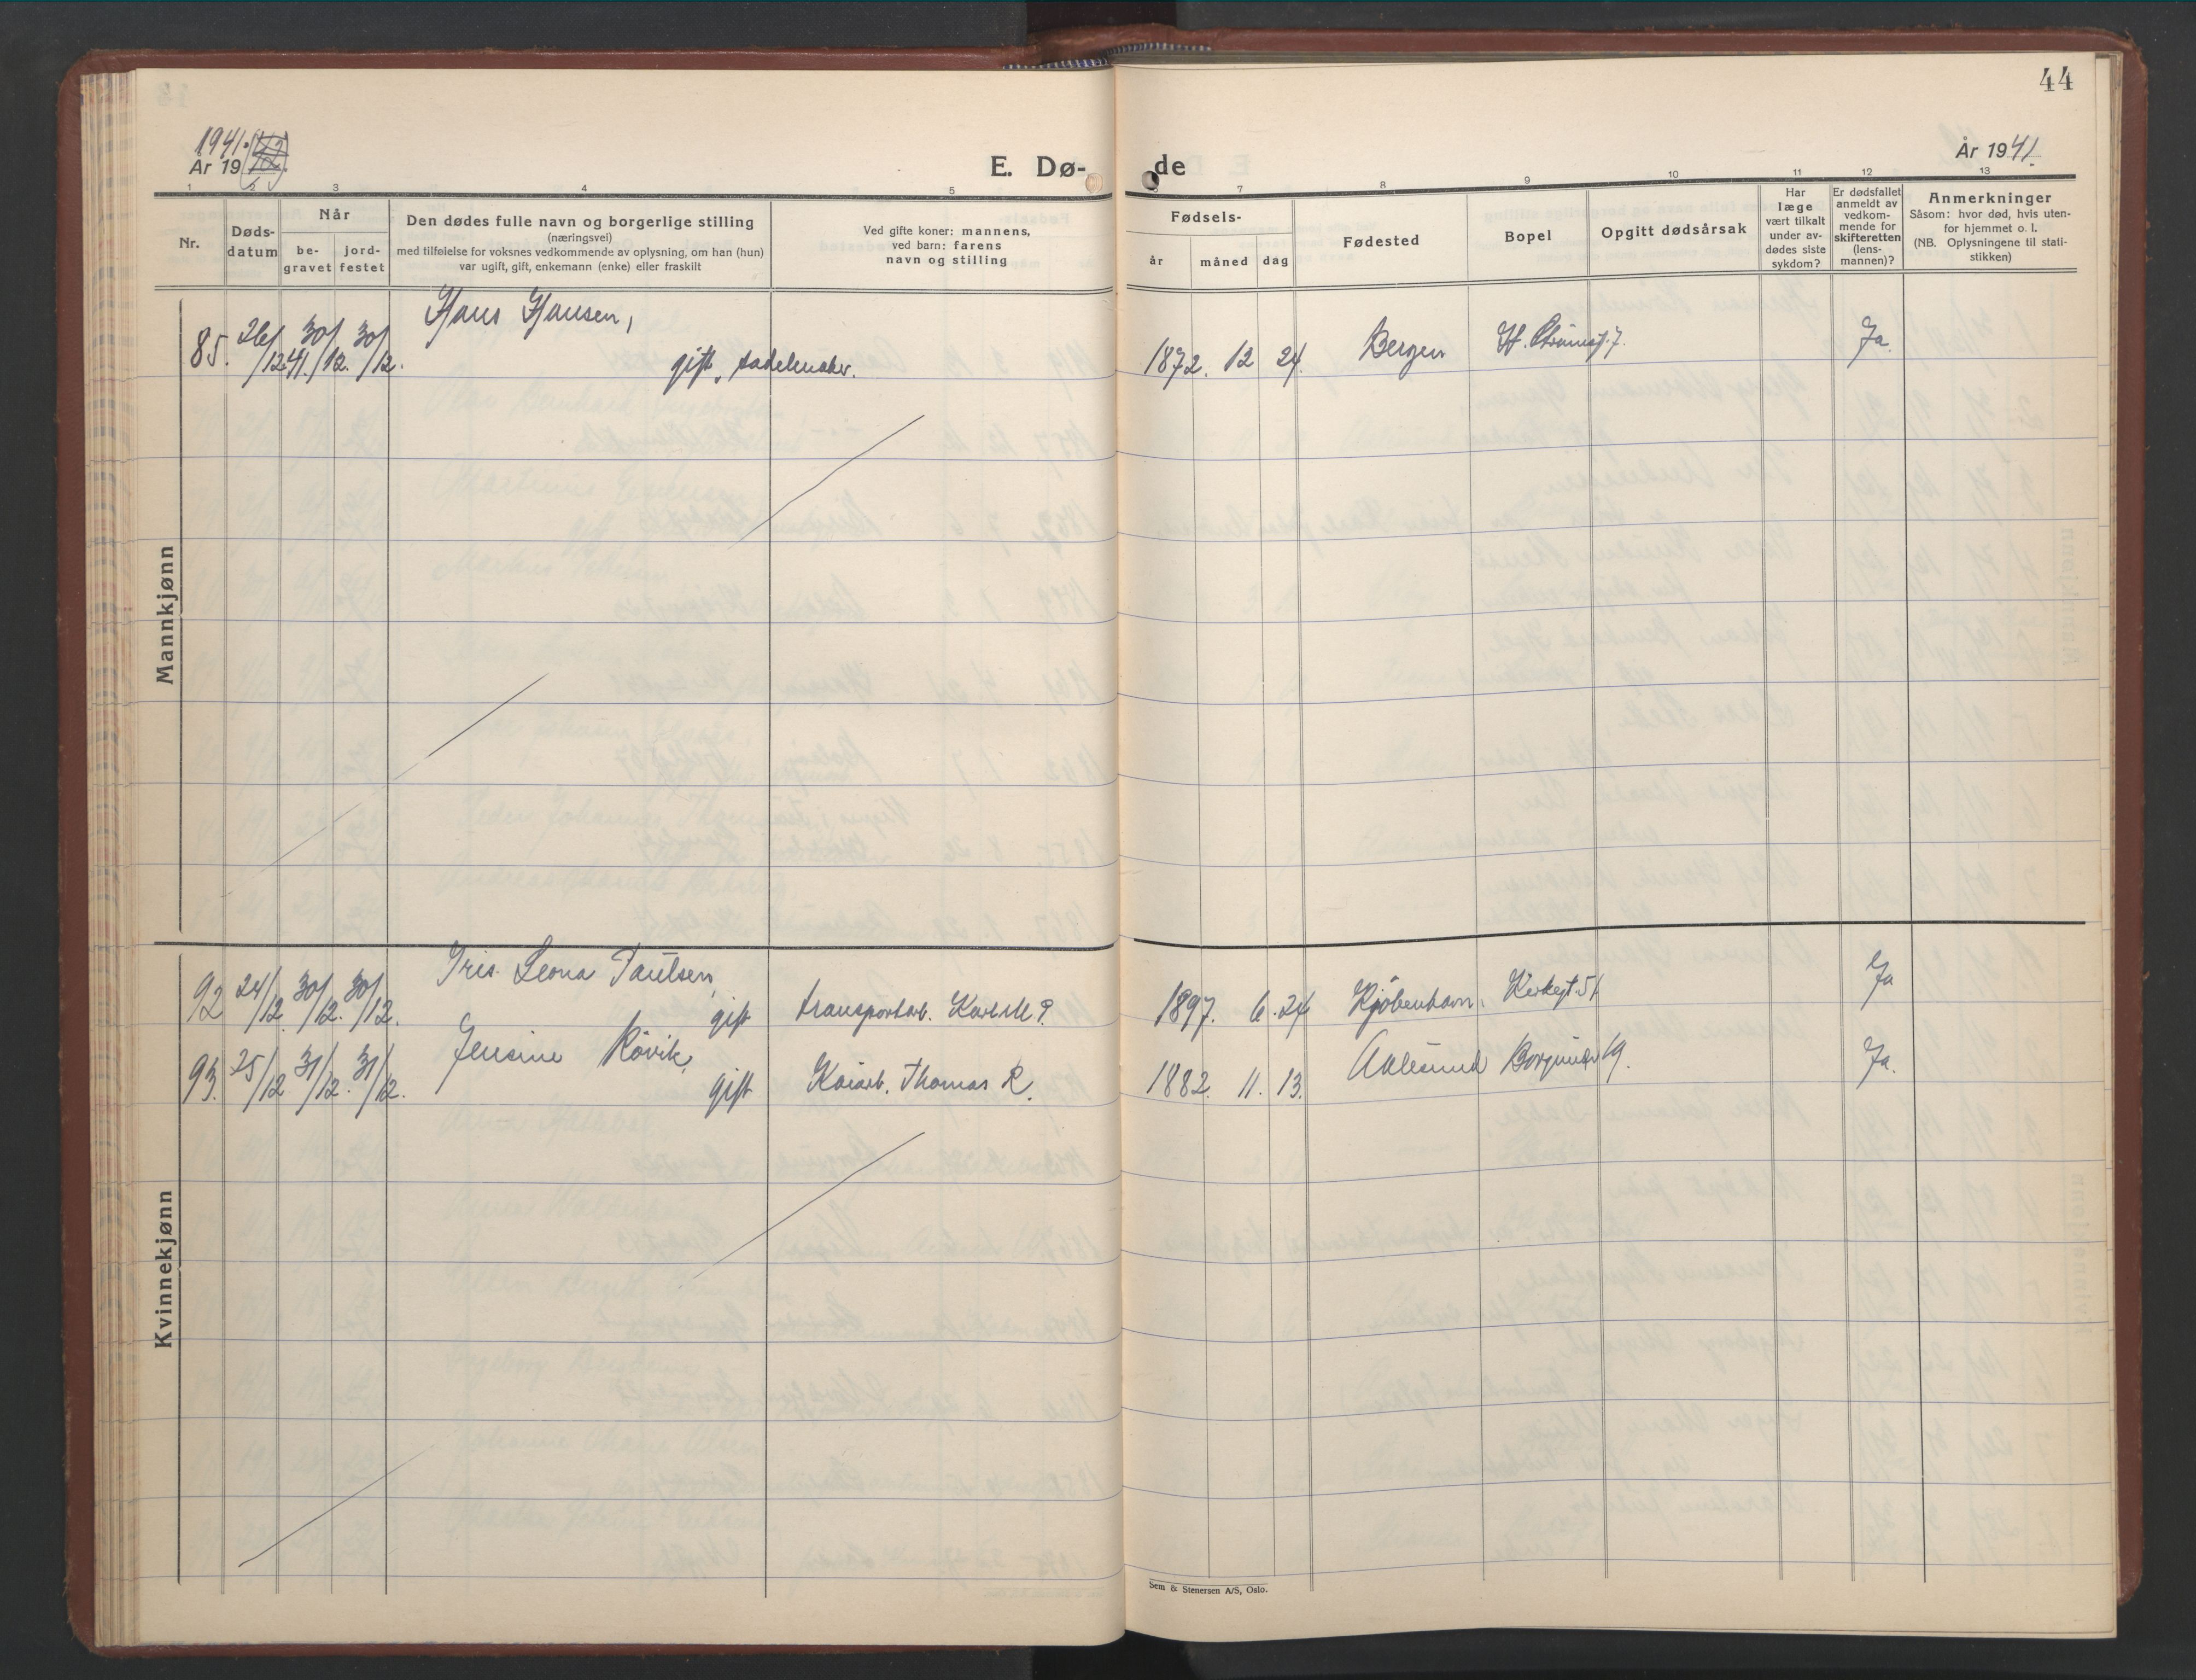 44
1941.
År 19
E. Dø-
de
År 1941.
1 2 3 4 5 6 7 8 9 10 11 12 13
Nr.
Døds-
datum
Når
be-
gravet
jord-
festet
Den dødes fulle navn og borgerlige stilling
(næringsvei)
med tilføielse for voksnes vedkommende av oplysning, om han (hun)
var ugift, gift, enkemann (enke) eller fraskilt
Ved gifte koner: mannens,
ved barn: farens
navn og stilling
Fødsels-
år måned dag
Fødested
Bopel
Opgitt dødsårsak
Har
læge
vært tilkalt
under av-
dødes siste
sykdom?
Er dødsfallet
anmeldt av
vedkom-
mende for
skifteretten
(lens-
mannen)?
Anmerkninger
Såsom: hvor død, hvis uten-
for hjemmet o. l.
(NB. Oplysningene til stati-
stikken)
Mannkjønn
85. 26/12.41. 30/12. 30/12. Hans Hansen,
gift, sadelmaker. 1872. 12 24. Bergen Ja.
Kvinnekjønn
92 24/12. 30/12. 30/12. Iris Leona Paulsen,
gift transportarb. Karl M P. 1897. 6. 24 Kjøbenhavn. Kirkegt 51 Ja
93. 25/12 31/12. 31/12. Jensine Røvik,
gift Kaiarb. Thomas R. 1882. 11. 13. Aalesund Ja.
Sem & Stenersen A/S, Oslo.